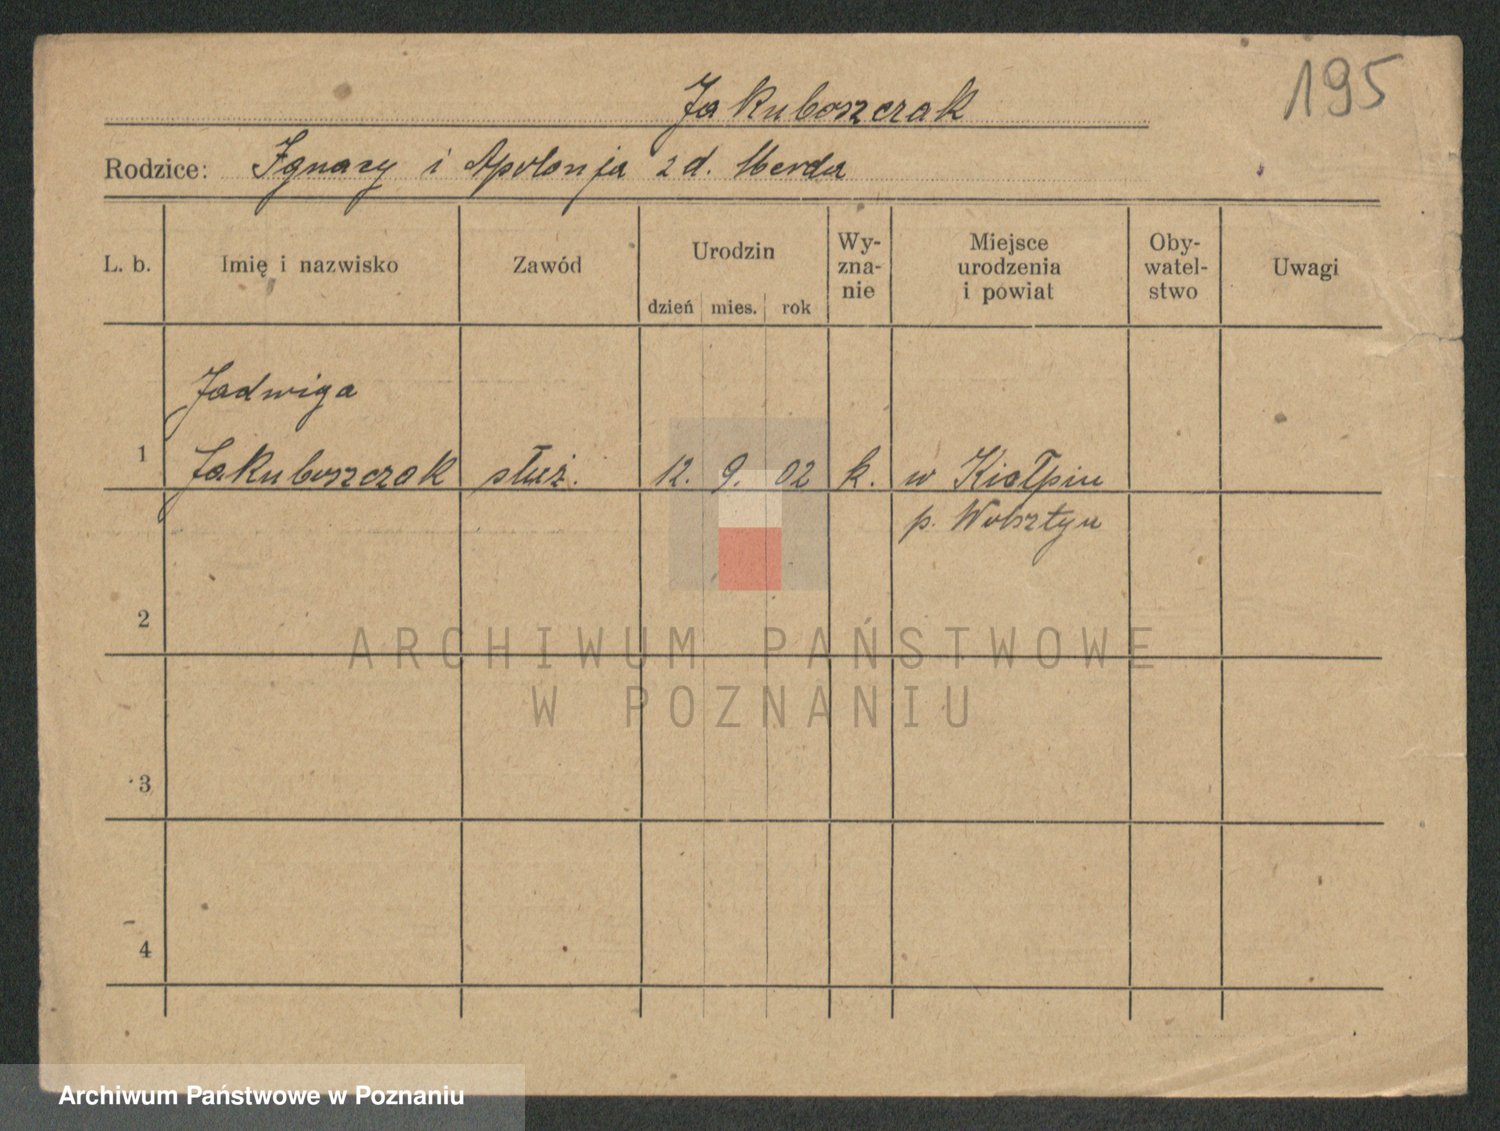 195
Jakuboszczak
Rodzice: Ignacy i Apolonja z d. Merda
L. b.
Imię i nazwisko
Zawód
Urodzin
dzień mies. rok
Wy-
zna-
nie
Miejsce
urodzenia
i powiat
Oby-
watel-
stwo
Uwagi
Jadwiga
1 Jakuboszczak służ. 12. 9. 02 k. w Kiełpin
p. Wolsztyn
2
3
4
ARCHIWUM PAŃSTWOWE
W POZNANIU
Archiwum Państwowe w Poznaniu